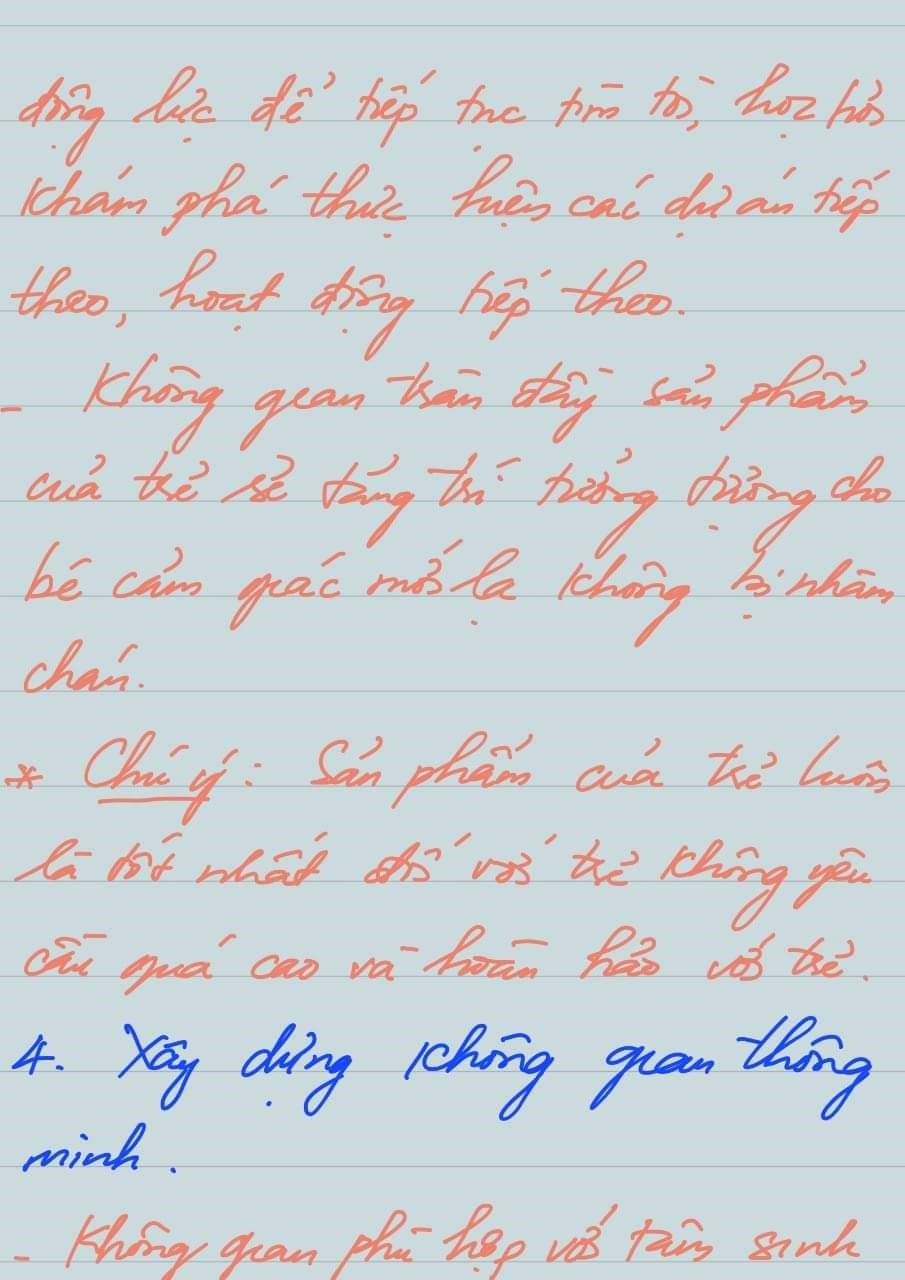 động lực để tiếp tục tìm tòi, học hỏi
khám phá thực hiện các dự án tiếp
theo, hoạt động tiếp theo.
- Không gian tràn đầy sản phẩm
của trẻ sẽ tăng trí tưởng tượng cho
bé cảm giác mới lạ không bị nhàm
chán.
* Chú ý: Sản phẩm của trẻ luôn
là tốt nhất đối với trẻ không yêu
cầu quá cao và hoàn hảo với trẻ.
4. Xây dựng không gian thông
minh.
- Không gian phù hợp với tâm sinh